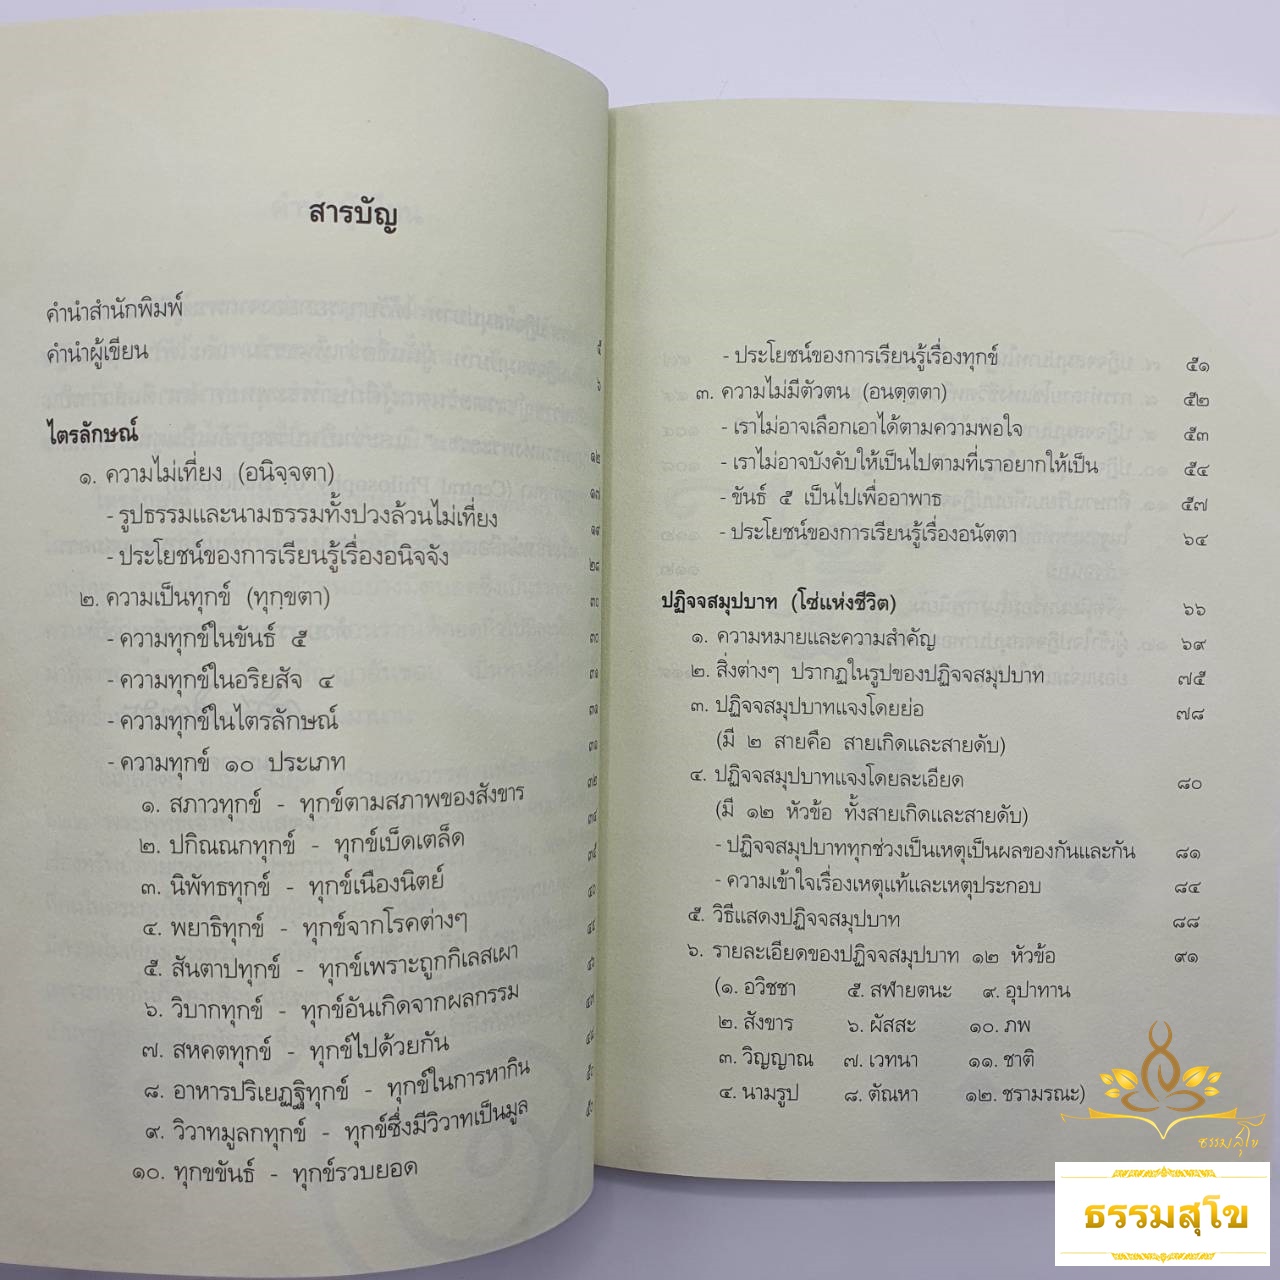 สารบัญ
คำนำสำนักพิมพ์ ๕
คำนำผู้เขียน ๖
ไตรลักษณ์ ๑๒
๑. ความไม่เที่ยง (อนิจฺจตา) ๑๗
- รูปธรรมและนามธรรมทั้งปวงล้วนไม่เที่ยง ๑๙
- ประโยชน์ของการเรียนรู้เรื่องอนิจจัง ๒๘
๒. ความเป็นทุกข์ (ทุกฺขตา) ๓๐
- ความทุกข์ในขันธ์ ๕ ๓๐
- ความทุกข์ในอริยสัจ ๔ ๓๑
- ความทุกข์ในไตรลักษณ์
- ความทุกข์ ๑๐ ประเภท
๑. สภาวทุกข์ - ทุกข์ตามสภาพของสังขาร
๒. ปกิณณกทุกข์ - ทุกข์เบ็ดเตล็ด
๓. นิพัทธทุกข์ - ทุกข์เนืองนิตย์
๔. พยาธิทุกข์ - ทุกข์จากโรคต่างๆ
๕. สันตาปทุกข์ - ทุกข์เพราะถูกกิเลสเผา
๖. วิบากทุกข์ - ทุกข์อันเกิดจากผลกรรม
๗. สหคตทุกข์ - ทุกข์ไปด้วยกัน
๘. อาหารปริเยฏฐิทุกข์ - ทุกข์ในการหากิน
๙. วิวาทมูลกทุกข์ - ทุกข์ซึ่งมีวิวาทเป็นมูล
๑๐. ทุกขขันธ์ - ทุกข์รวบยอด
- ประโยชน์ของการเรียนรู้เรื่องทุกข์ ๕๑
๓. ความไม่มีตัวตน (อนตฺตตา) ๕๒
- เราไม่อาจเลือกเอาได้ตามความพอใจ ๕๓
- เราไม่อาจบังคับให้เป็นไปตามที่เราอยากให้เป็น ๕๔
- ขันธ์ ๕ เป็นไปเพื่ออาพาธ ๕๗
- ประโยชน์ของการเรียนรู้เรื่องอนัตตา ๖๔
ปฏิจจสมุปบาท (โซ่แห่งชีวิต) ๖๖
๑. ความหมายและความสำคัญ ๖๙
๒. สิ่งต่างๆ ปรากฏในรูปของปฏิจจสมุปบาท ๗๕
๓. ปฏิจจสมุปบาทแจงโดยย่อ ๗๘
(มี ๒ สายคือ สายเกิดและสายดับ)
๔. ปฏิจจสมุปบาทแจงโดยละเอียด ๘๐
(มี ๑๒ หัวข้อ ทั้งสายเกิดและสายดับ)
- ปฏิจจสมุปบาททุกช่วงเป็นเหตุเป็นผลของกันและกัน ๘๑
- ความเข้าใจเรื่องเหตุแท้และเหตุประกอบ ๘๔
๕. วิธีแสดงปฏิจจสมุปบาท ๘๘
๖. รายละเอียดของปฏิจจสมุปบาท ๑๒ หัวข้อ ๙๑
(๑. อวิชชา ๕. สฬายตนะ ๙. อุปาทาน
๒. สังขาร ๖. ผัสสะ ๑๐. ภพ
๓. วิญญาณ ๗. เวทนา ๑๑. ชาติ
๔. นามรูป ๘. ตัณหา ๑๒. ชรามรณะ)
ธรรมสุโข
ธรรมสุโข